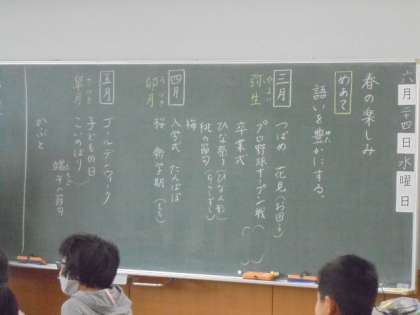 六月二十四日水曜日
春の楽しみ
めあて
語いを豊かにする。
三月
やよい
弥生
つばめ 花見(お団子)
プロ野球オープン戦
卒業式
ひな祭り(ひな人形)
桃の節句
梅
四月
うづき
卯月
入学式 たんぽぽ
桜 新学期
五月
さつき
皐月
ゴールデンウィーク
子どもの日
こいのぼり
端午の節句
かぶと